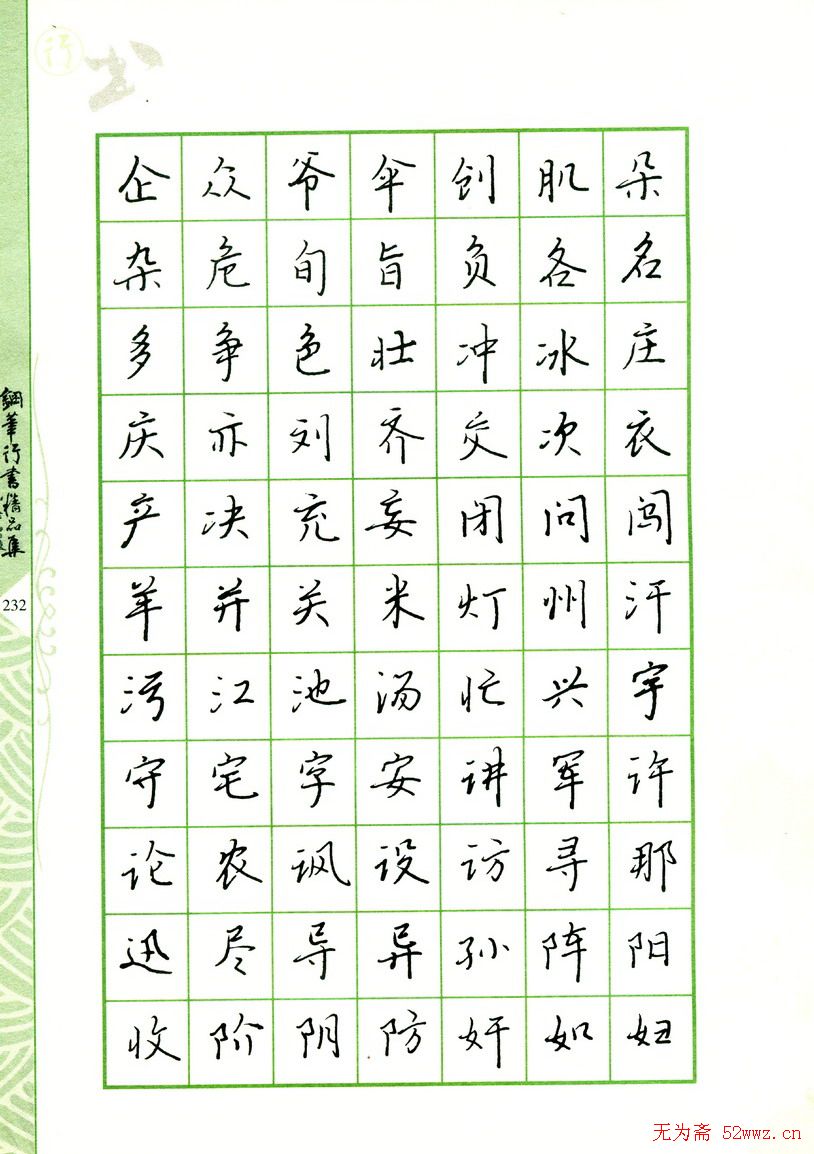 行书
企众爷伞创肌朵
杂危旬旨负各名
多争色壮冲冰庄
庆亦刘齐交次衣
产决充妄闭问闯
羊并关米灯州汗
污江池汤忙兴宇
守宅字安讲军许
论农讽设访寻那
迅尽导异孙阵阳
收阶阴防奸如妇
232
无为斋 52wwz.cn